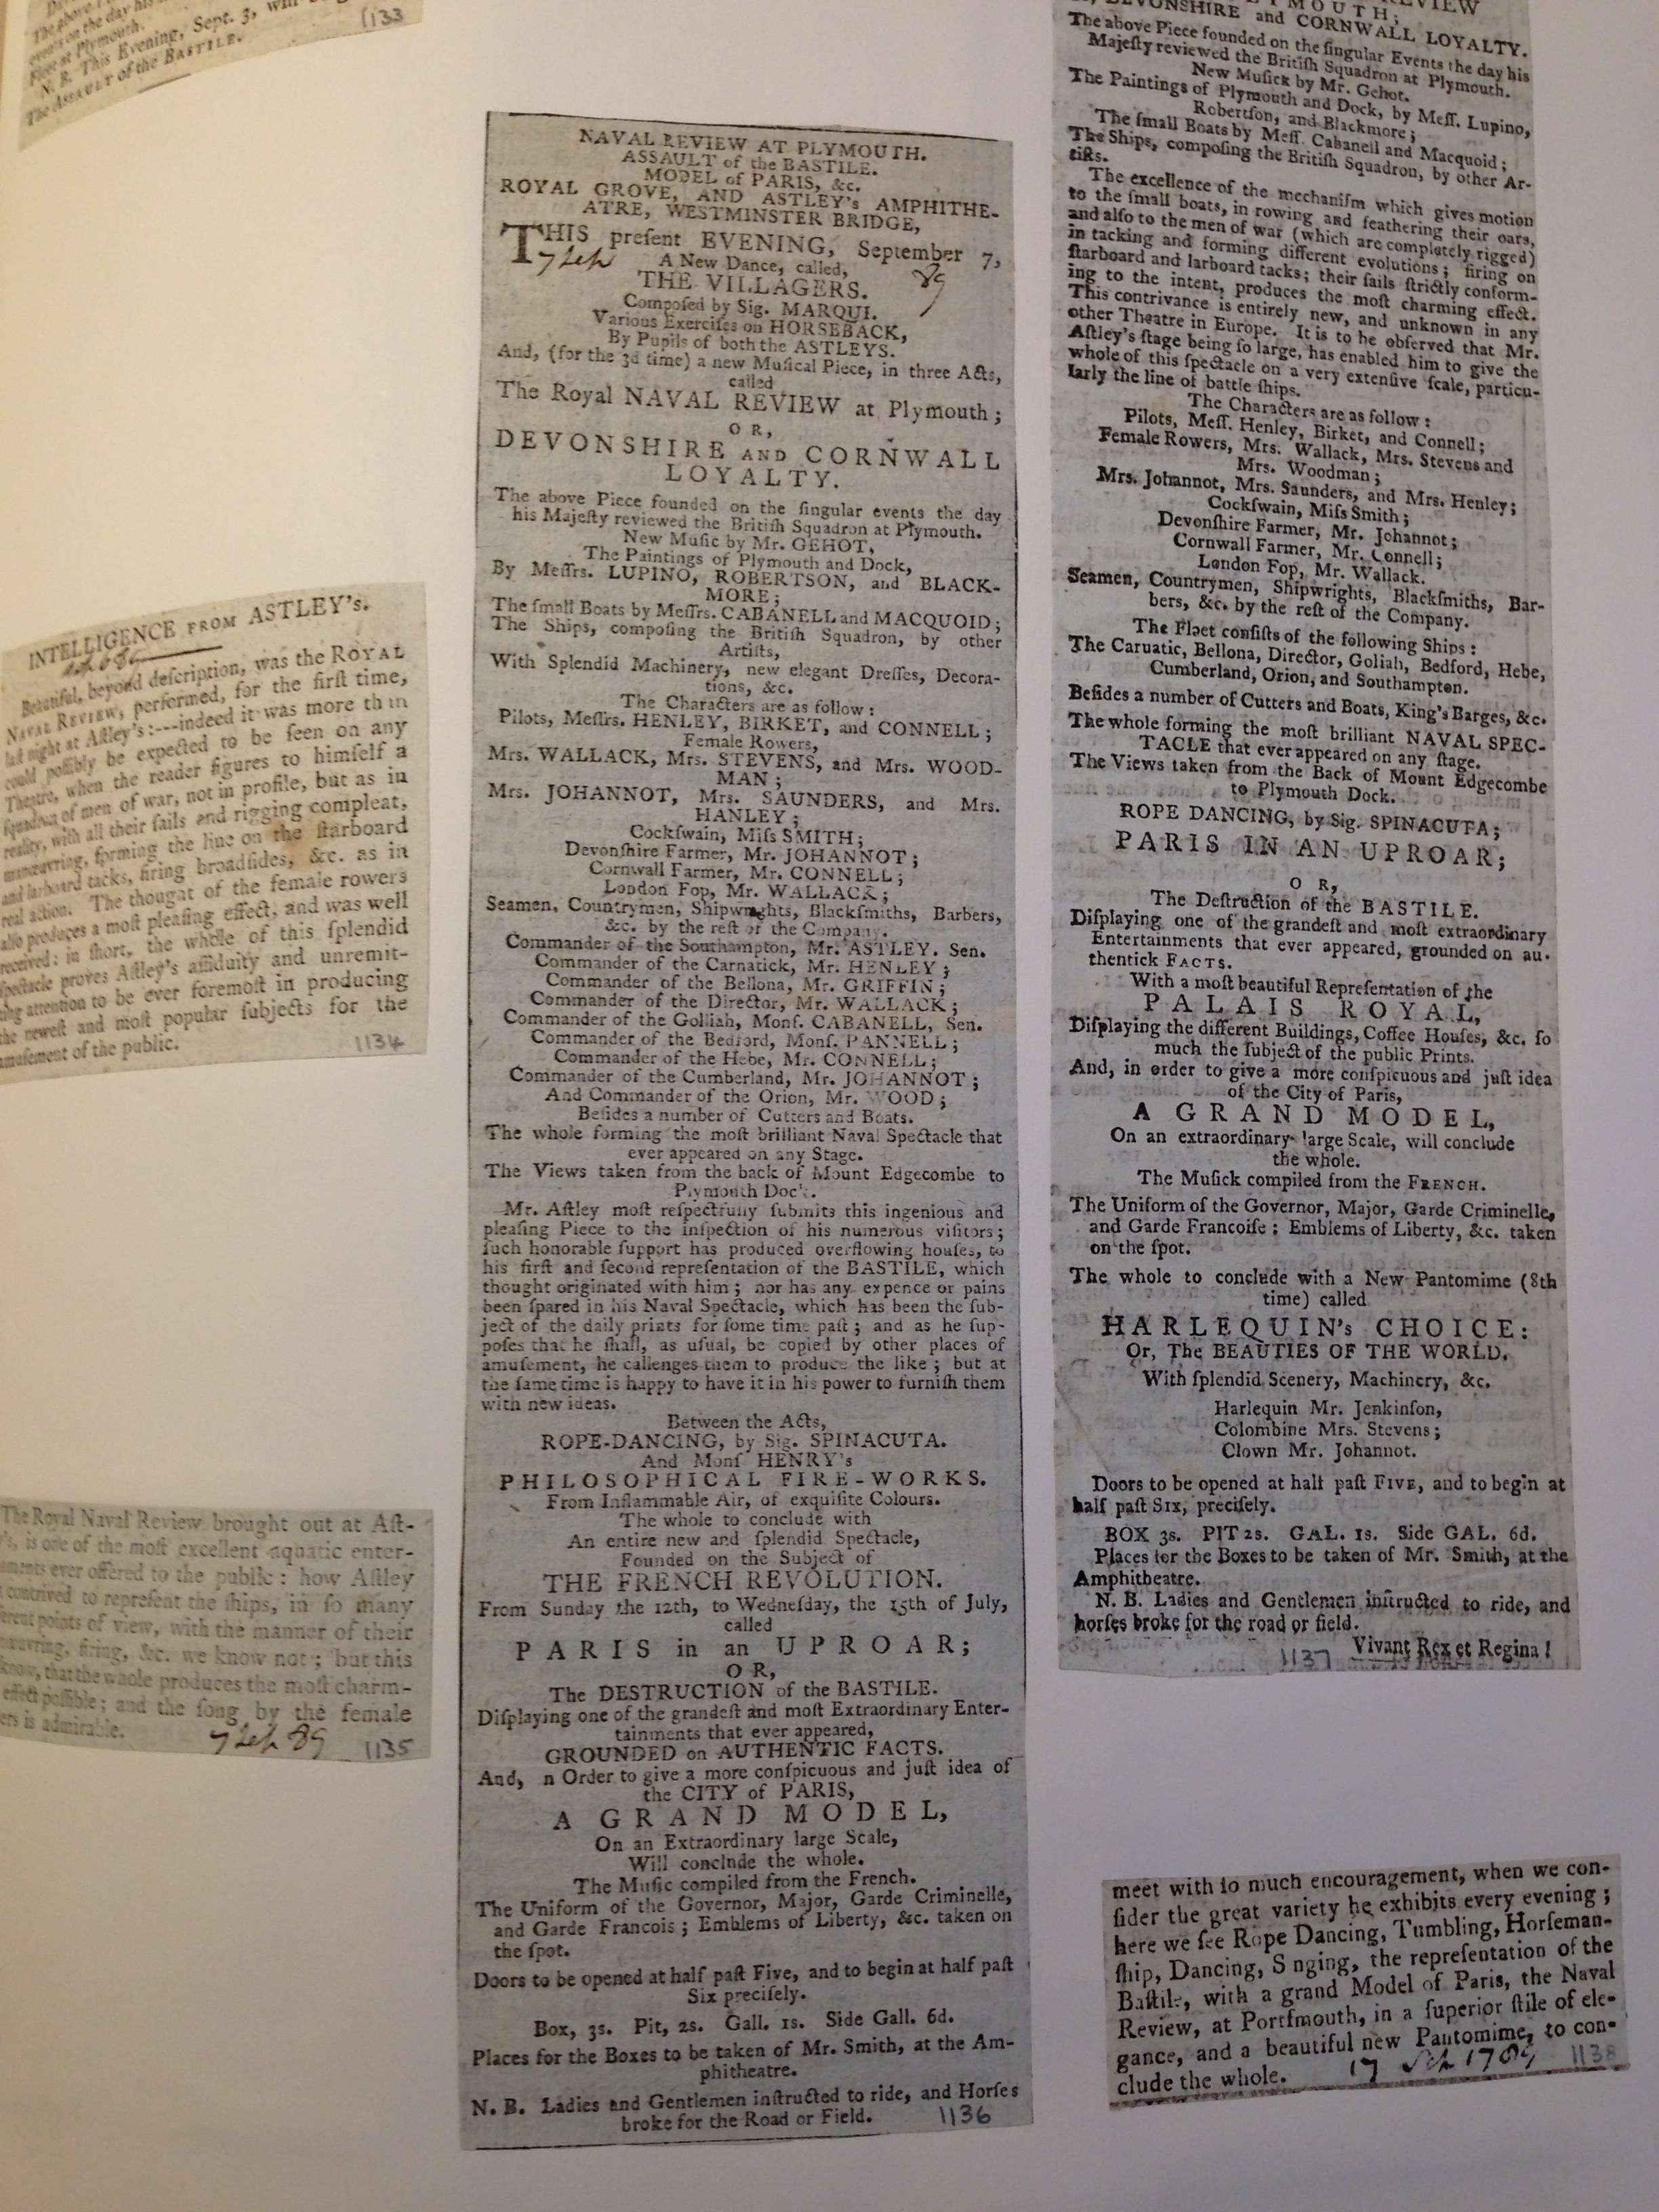 The above
events on the day his
Fleet at Plymouth.
N. B. This Evening, Sept. 3, will
The ASSAULT of the BASTILE.
1133
INTELLIGENCE FROM ASTLEY's.
Beautiful, beyond deſcription, was the ROYAL
NAVAL REVIEW, performed, for the firſt time,
laſt night at Aſtley's:---indeed it was more th n
could poſſibly be expected to be ſeen on any
Theatre, when the reader figures to himſelf a
ſquadron of men of war, not in profile, but as in
reality, with all their ſails and rigging compleat,
manœuvring, forming the line on the ſtarboard
and larboard tacks, firing broadſides, &c. as in
real action. The thougat of the female rowers
alſo produces a moſt pleaſing effect, and was well
received: in ſhort, the whole of this ſplendid
ſpectacle proves Aſtley's aſſiduity and unremit-
ting attention to be ever foremoſt in producing
the neweſt and moſt popular ſubjects for the
amuſement of the public.
1134
The Royal Naval Review brought out at Aſt-
's, is one of the moſt excellent aquatic enter-
ments ever offered to the public: how Aſtley
contrived to repreſent the ſhips, in ſo many
ferent points of view, with the manner of their
nœuvring, firing, &c. we know not; but this
know, that the whole produces the moſt charm-
effect poſſible; and the ſong by the female
ers is admirable.
7 Sep 89
1135
NAVAL REVIEW AT PLYMOUTH.
ASSAULT of the BASTILE.
MODEL of PARIS, &c.
ROYAL GROVE, AND ASTLEY's AMPHITHE-
ATRE, WESTMINSTER BRIDGE,
THIS preſent EVENING, September 7,
7 Sep 89
A New Dance, called,
THE VILLAGERS.
Compoſed by Sig. MARQUI.
Various Exerciſes on HORSEBACK,
By Pupils of both the ASTLEYS.
And, (for the 3d time) a new Muſical Piece, in three Acts,
called
The Royal NAVAL REVIEW at Plymouth;
OR,
DEVONSHIRE AND CORNWALL
LOYALTY.
The above Piece founded on the ſingular events the day
his Majeſty reviewed the Britiſh Squadron at Plymouth.
New Muſic by Mr. GEHOT,
The Paintings of Plymouth and Dock,
By Meſſrs. LUPINO, ROBERTSON, and BLACK-
MORE;
The ſmall Boats by Meſſrs. CABANELL and MACQUOID;
The Ships, compoſing the Britiſh Squadron, by other
Artiſts,
With Splendid Machinery, new elegant Dreſſes, Decora-
tions, &c.
The Characters are as follow:
Pilots, Meſſrs. HENLEY, BIRKET, and CONNELL;
Female Rowers,
Mrs. WALLACK, Mrs. STEVENS, and Mrs. WOOD-
MAN;
Mrs. JOHANNOT, Mrs. SAUNDERS, and Mrs.
HANLEY;
Cockſwain, Miſs SMITH;
Devonſhire Farmer, Mr. JOHANNOT;
Cornwall Farmer, Mr. CONNELL;
London Fop, Mr. WALLACK;
Seamen, Countrymen, Shipwrights, Blackſmiths, Barbers,
&c. by the reſt of the Company.
Commander of the Southampton, Mr. ASTLEY. Sen.
Commander of the Carnatick, Mr. HENLEY;
Commander of the Bellona, Mr. GRIFFIN;
Commander of the Director, Mr. WALLACK;
Commander of the Golliah, Monſ. CABANELL, Sen.
Commander of the Bedford, Monſ. PANNELL;
Commander of the Hebe, Mr. CONNELL;
Commander of the Cumberland, Mr. JOHANNOT;
And Commander of the Orion, Mr. WOOD;
Beſides a number of Cutters and Boats.
The whole forming the moſt brilliant Naval Spectacle that
ever appeared on any Stage.
The Views taken from the back of Mount Edgecombe to
Plymouth Dock.
Mr. Aſtley moſt reſpectfully ſubmits this ingenious and
pleaſing Piece to the inſpection of his numerous viſitors;
ſuch honorable ſupport has produced overflowing houſes, to
his firſt and ſecond repreſentation of the BASTILE, which
thought originated with him; nor has any expence or pains
been ſpared in his Naval Spectacle, which has been the ſub-
ject of the daily prints for ſome time paſt; and as he ſup-
poſes that he ſhall, as uſual, be copied by other places of
amuſement, he callenges them to produce the like; but at
the ſame time is happy to have it in his power to furniſh them
with new ideas.
Between the Acts,
ROPE-DANCING, by Sig. SPINACUTA.
And Monſ HENRY's
PHILOSOPHICAL FIRE-WORKS.
From Inflammable Air, of exquiſite Colours.
The whole to conclude with
An entire new and ſplendid Spectacle,
Founded on the Subject of
THE FRENCH REVOLUTION.
From Sunday the 12th, to Wedneſday, the 15th of July,
called
PARIS in an UPROAR;
OR,
The DESTRUCTION of the BASTILE.
Diſplaying one of the grandeſt and moſt Extraordinary Enter-
tainments that ever appeared,
GROUNDED on AUTHENTIC FACTS.
And, n Order to give a more conſpicuous and juſt idea of
the CITY of PARIS,
A GRAND MODEL,
On an Extraordinary large Scale,
Will conclnde the whole.
The Muſic compiled from the French.
The Uniform of the Governor, Major, Garde Criminelle,
and Garde Francois; Emblems of Liberty, &c. taken on
the ſpot.
Doors to be opened at half paſt Five, and to begin at half paſt
Six preciſely.
Box, 3s. Pit, 2s. Gall. 1s. Side Gall. 6d.
Places for the Boxes to be taken of Mr. Smith, at the Am-
phitheatre.
N. B. Ladies and Gentlemen inſtructed to ride, and Horſes
broke for the Road or Field.
1136
REVIEW
MOUTH;
DEVONSHIRE and CORNWALL LOYALTY.
The above Piece founded on the ſingular Events the day his
Majeſty reviewed the Britiſh Squadron at Plymouth.
New Muſick by Mr. Gehot.
The Paintings of Plymouth and Dock, by Meſſ. Lupino,
Robertſon, and Blackmore;
The ſmall Boats by Meſſ. Cabanell and Macquoid;
The Ships, compoſing the Britiſh Squadron, by other Ar-
tiſts.
The excellence of the mechaniſm which gives motion
to the ſmall boats, in rowing and feathering their oars,
and alſo to the men of war (which are completely rigged)
in tacking and forming different evolutions; firing on
ſtarboard and larboard tacks; their ſails ſtrictly conform-
ing to the intent, produces the moſt charming effect.
This contrivance is entirely new, and unknown in any
other Theatre in Europe. It is to be obſerved that Mr.
Aſtley's ſtage being ſo large, has enabled him to give the
whole of this ſpectacle on a very extenſive ſcale, particu-
larly the line of battle ſhips.
The Characters are as follow:
Pilots, Meſſ. Henley, Birket, and Connell;
Female Rowers, Mrs. Wallack, Mrs. Stevens and
Mrs. Woodman;
Mrs. Johannot, Mrs. Saunders, and Mrs. Henley;
Cockſwain, Miſs Smith;
Devonſhire Farmer, Mr. Johannot;
Cornwall Farmer, Mr. Connell;
London Fop, Mr. Wallack.
Seamen, Countrymen, Shipwrights, Blackſmiths, Bar-
bers, &c. by the reſt of the Company.
The Fleet conſiſts of the following Ships:
The Caruatic, Bellona, Director, Goliah, Bedford, Hebe,
Cumberland, Orion, and Southampton.
Beſides a number of Cutters and Boats, King's Barges, &c.
The whole forming the moſt brilliant NAVAL SPEC-
TACLE that ever appeared on any ſtage.
The Views taken from the Back of Mount Edgecombe
to Plymouth Dock.
ROPE DANCING, by Sig. SPINACUTA;
PARIS IN AN UPROAR;
OR,
The Deſtruction of the BASTILE.
Diſplaying one of the grandeſt and moſt extraordinary
Entertainments that ever appeared, grounded on au-
thentick FACTS.
With a moſt beautiful Repreſentation of the
PALAIS ROYAL,
Diſplaying the different Buildings, Coffee Houſes, &c. ſo
much the ſubject of the public Prints.
And, in order to give a more conſpicuous and juſt idea
of the City of Paris,
A GRAND MODEL,
On an extraordinary large Scale, will conclude
the whole.
The Muſick compiled from the FRENCH.
The Uniform of the Governor, Major, Garde Criminelle,
and Garde Francoiſe; Emblems of Liberty, &c. taken
on the ſpot.
The whole to conclude with a New Pantomime (8th
time) called
HARLEQUIN's CHOICE:
Or, The BEAUTIES OF THE WORLD.
With ſplendid Scenery, Machinery, &c.
Harlequin Mr. Jenkinſon,
Colombine Mrs. Stevens;
Clown Mr. Johannot.
Doors to be opened at half paſt FIVE, and to begin at
half paſt SIX, preciſely.
BOX 3s. PIT 2s. GAL. 1s. Side GAL. 6d.
Places for the Boxes to be taken of Mr. Smith, at the
Amphitheatre.
N. B. Ladies and Gentlemen inſtructed to ride, and
horſes broke for the road or field.
Vivant Rex et Regina!
1137
meet with ſo much encouragement, when we con-
ſider the great variety he exhibits every evening;
here we ſee Rope Dancing, Tumbling, Horſeman-
ſhip, Dancing, S nging, the repreſentation of the
Baſtile, with a grand Model of Paris, the Naval
Review, at Portſmouth, in a ſuperior ſtile of ele-
gance, and a beautiful new Pantomime, to con-
clude the whole.
17 Sep 1789
1138